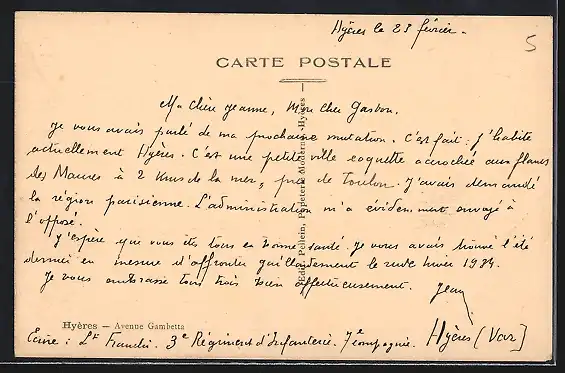 Hyères le 23 février.
5
CARTE POSTALE
Ma chère Jeanne, Mon cher Gaston.
Je vous avais parlé de ma prochaine mutation. C'est fait. J'habite
actuellement Hyères. C'est une petite ville coquette accrochée aux flancs
des Maures à 2 Kms de la mer, près de Toulon. J'avais demandé
la région parisienne. L'administration m'a évidemment envoyé à
l'opposé.
J'espère que vous êtes tous en bonne santé. Je vous avais trouvé l'été
dernier en mesure d'affronter gaillardement le rude hiver 1934.
Je vous embrasse tous trois bien affectueusement.
Jean
Edit. Pellein, Papeterie Moderne, Hyères
Hyères — Avenue Gambetta
Ecrire : Lt 3e Régiment d'Infanterie. 7e compagnie. Hyères (Var)